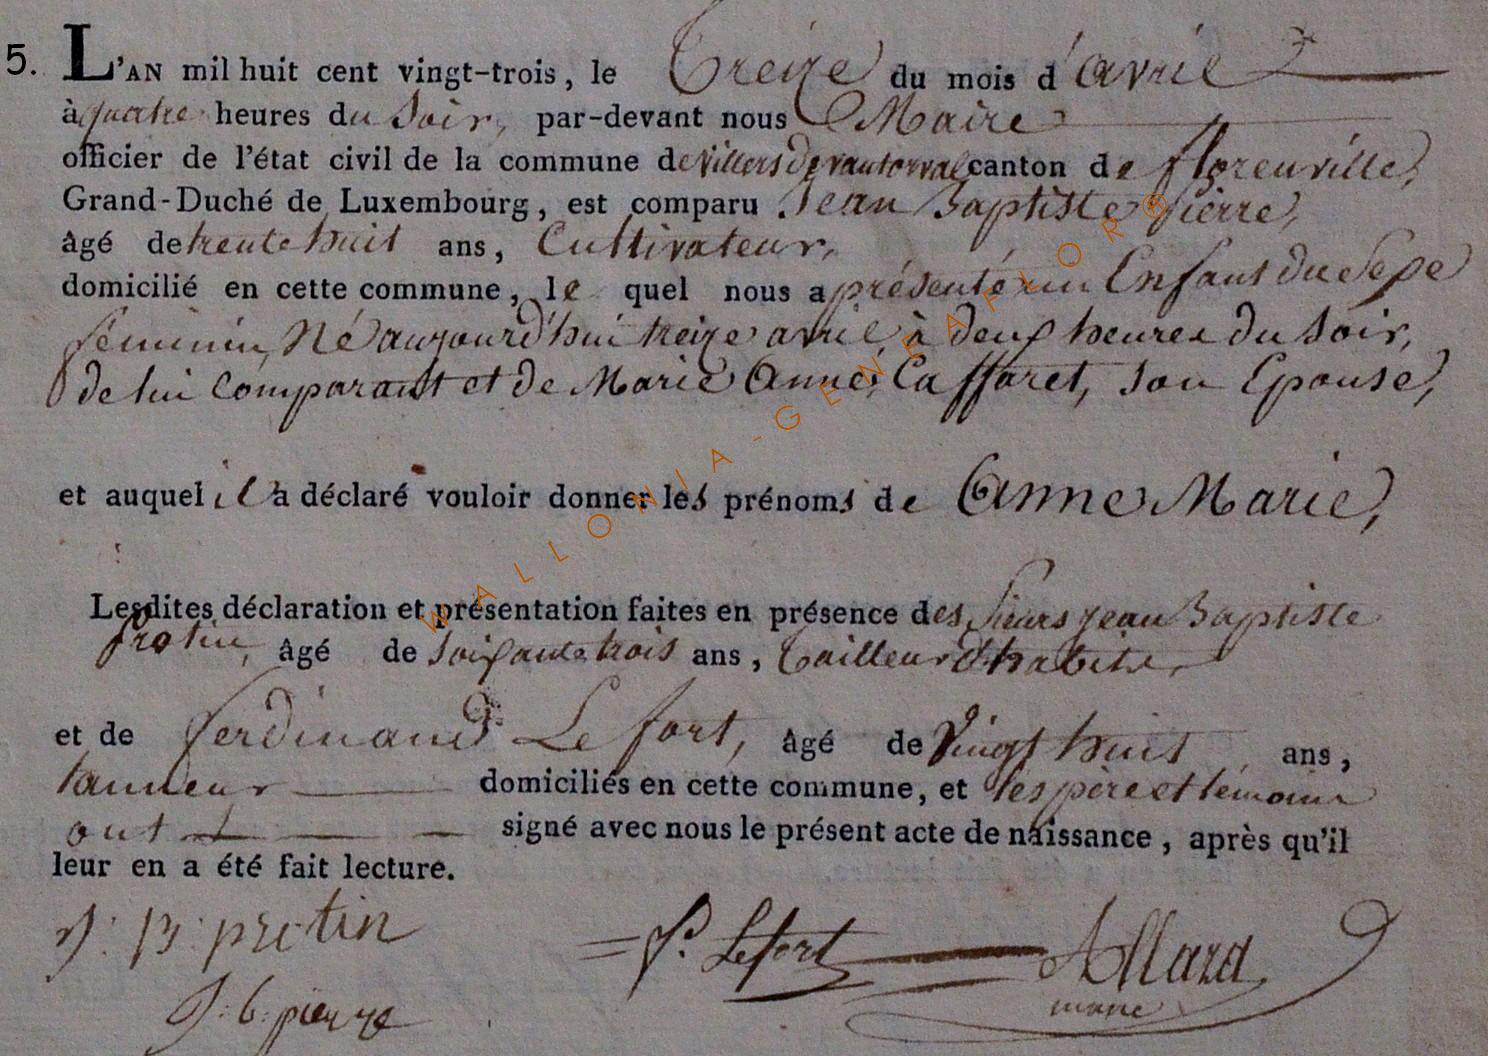 5. L'AN mil huit cent vingt-trois, le Treize du mois d'avril
à quatre heures du Soir, par-devant nous Maire
officier de l'état civil de la commune de Villers devant orval canton de florenville,
Grand-Duché de Luxembourg, est comparu Jean Baptiste Pierre,
âgé de trente huit ans, Cultivateur,
domicilié en cette commune, le quel nous a présenté un Enfant du Sexe
féminin, Né aujourd'hui treize avril, à deux heures du Soir,
de lui Comparant et de Marie Anne, Caffaret, Son Epouse,
et auquel il a déclaré vouloir donner les prénoms de Anne Marie,
Lesdites déclaration et présentation faites en présence des Sieurs jean Baptiste
protin, âgé de Soixante trois ans, Tailleur d'habits,
et de ferdinand Le fort, âgé de Vingt huit ans,
tanneur domiciliés en cette commune, et les père et témoins
ont signé avec nous le présent acte de naissance, après qu'il
leur en a été fait lecture.
J: B: protin
f. Lefort
Allard
maire
J: b: pierre
WALLONIA-GENEAFLOR®